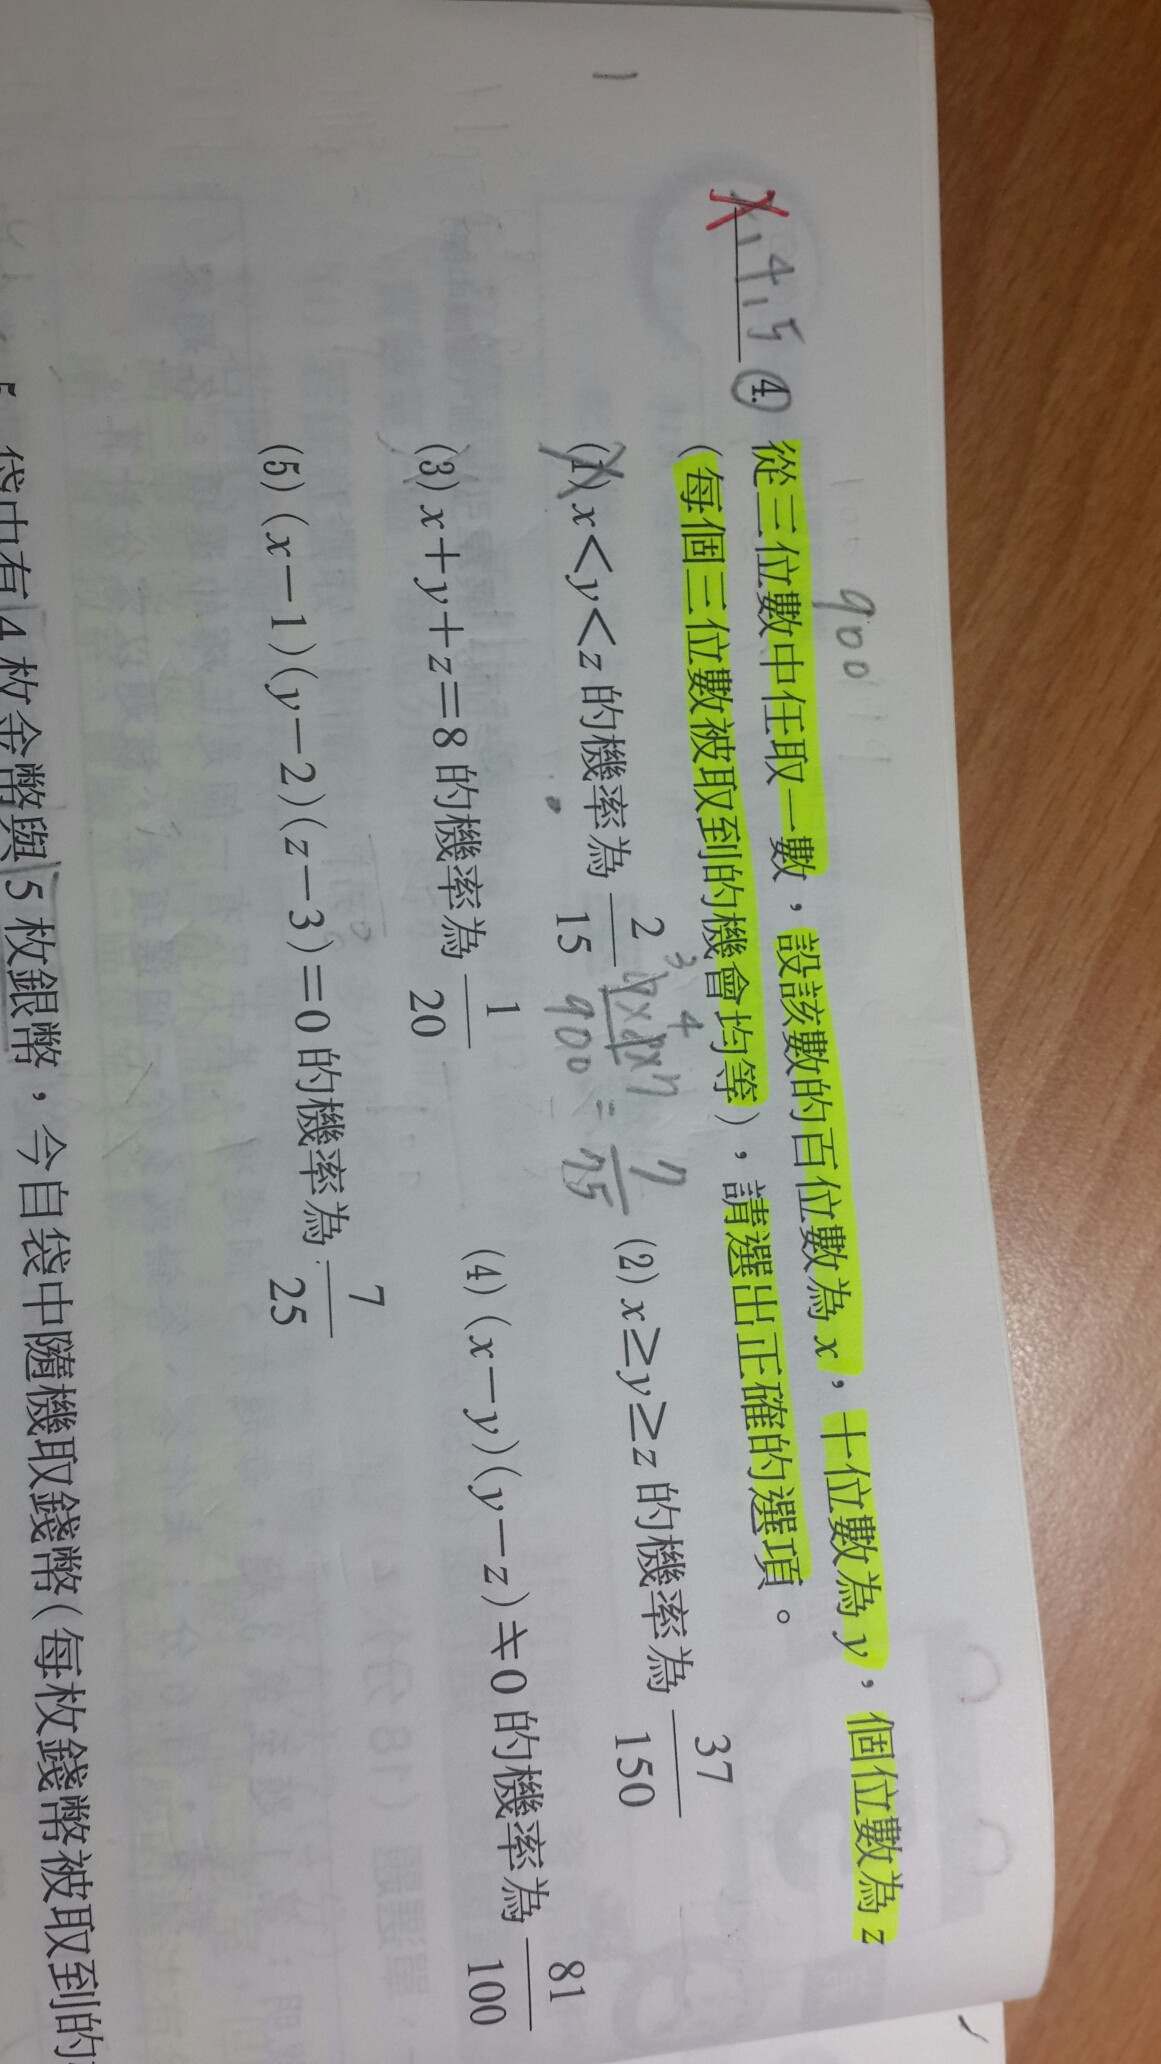 900
4,5 ④ 從三位數中任取一數，設該數的百位數為 x，十位數為 y，個位數為 z
(每個三位數被取到的機會均等)，請選出正確的選項。
(1) x<y<z 的機率為 2/15 (2) x≥y≥z 的機率為 37/150
900 = 7/75
(3) x+y+z=8 的機率為 1/20 (4) (x-y)(y-z)≠0 的機率為 81/100
(5) (x-1)(y-2)(z-3)=0 的機率為 7/25
5. 袋中有 4 枚金幣與 5 枚銀幣，今自袋中隨機取錢幣(每枚錢幣被取到的